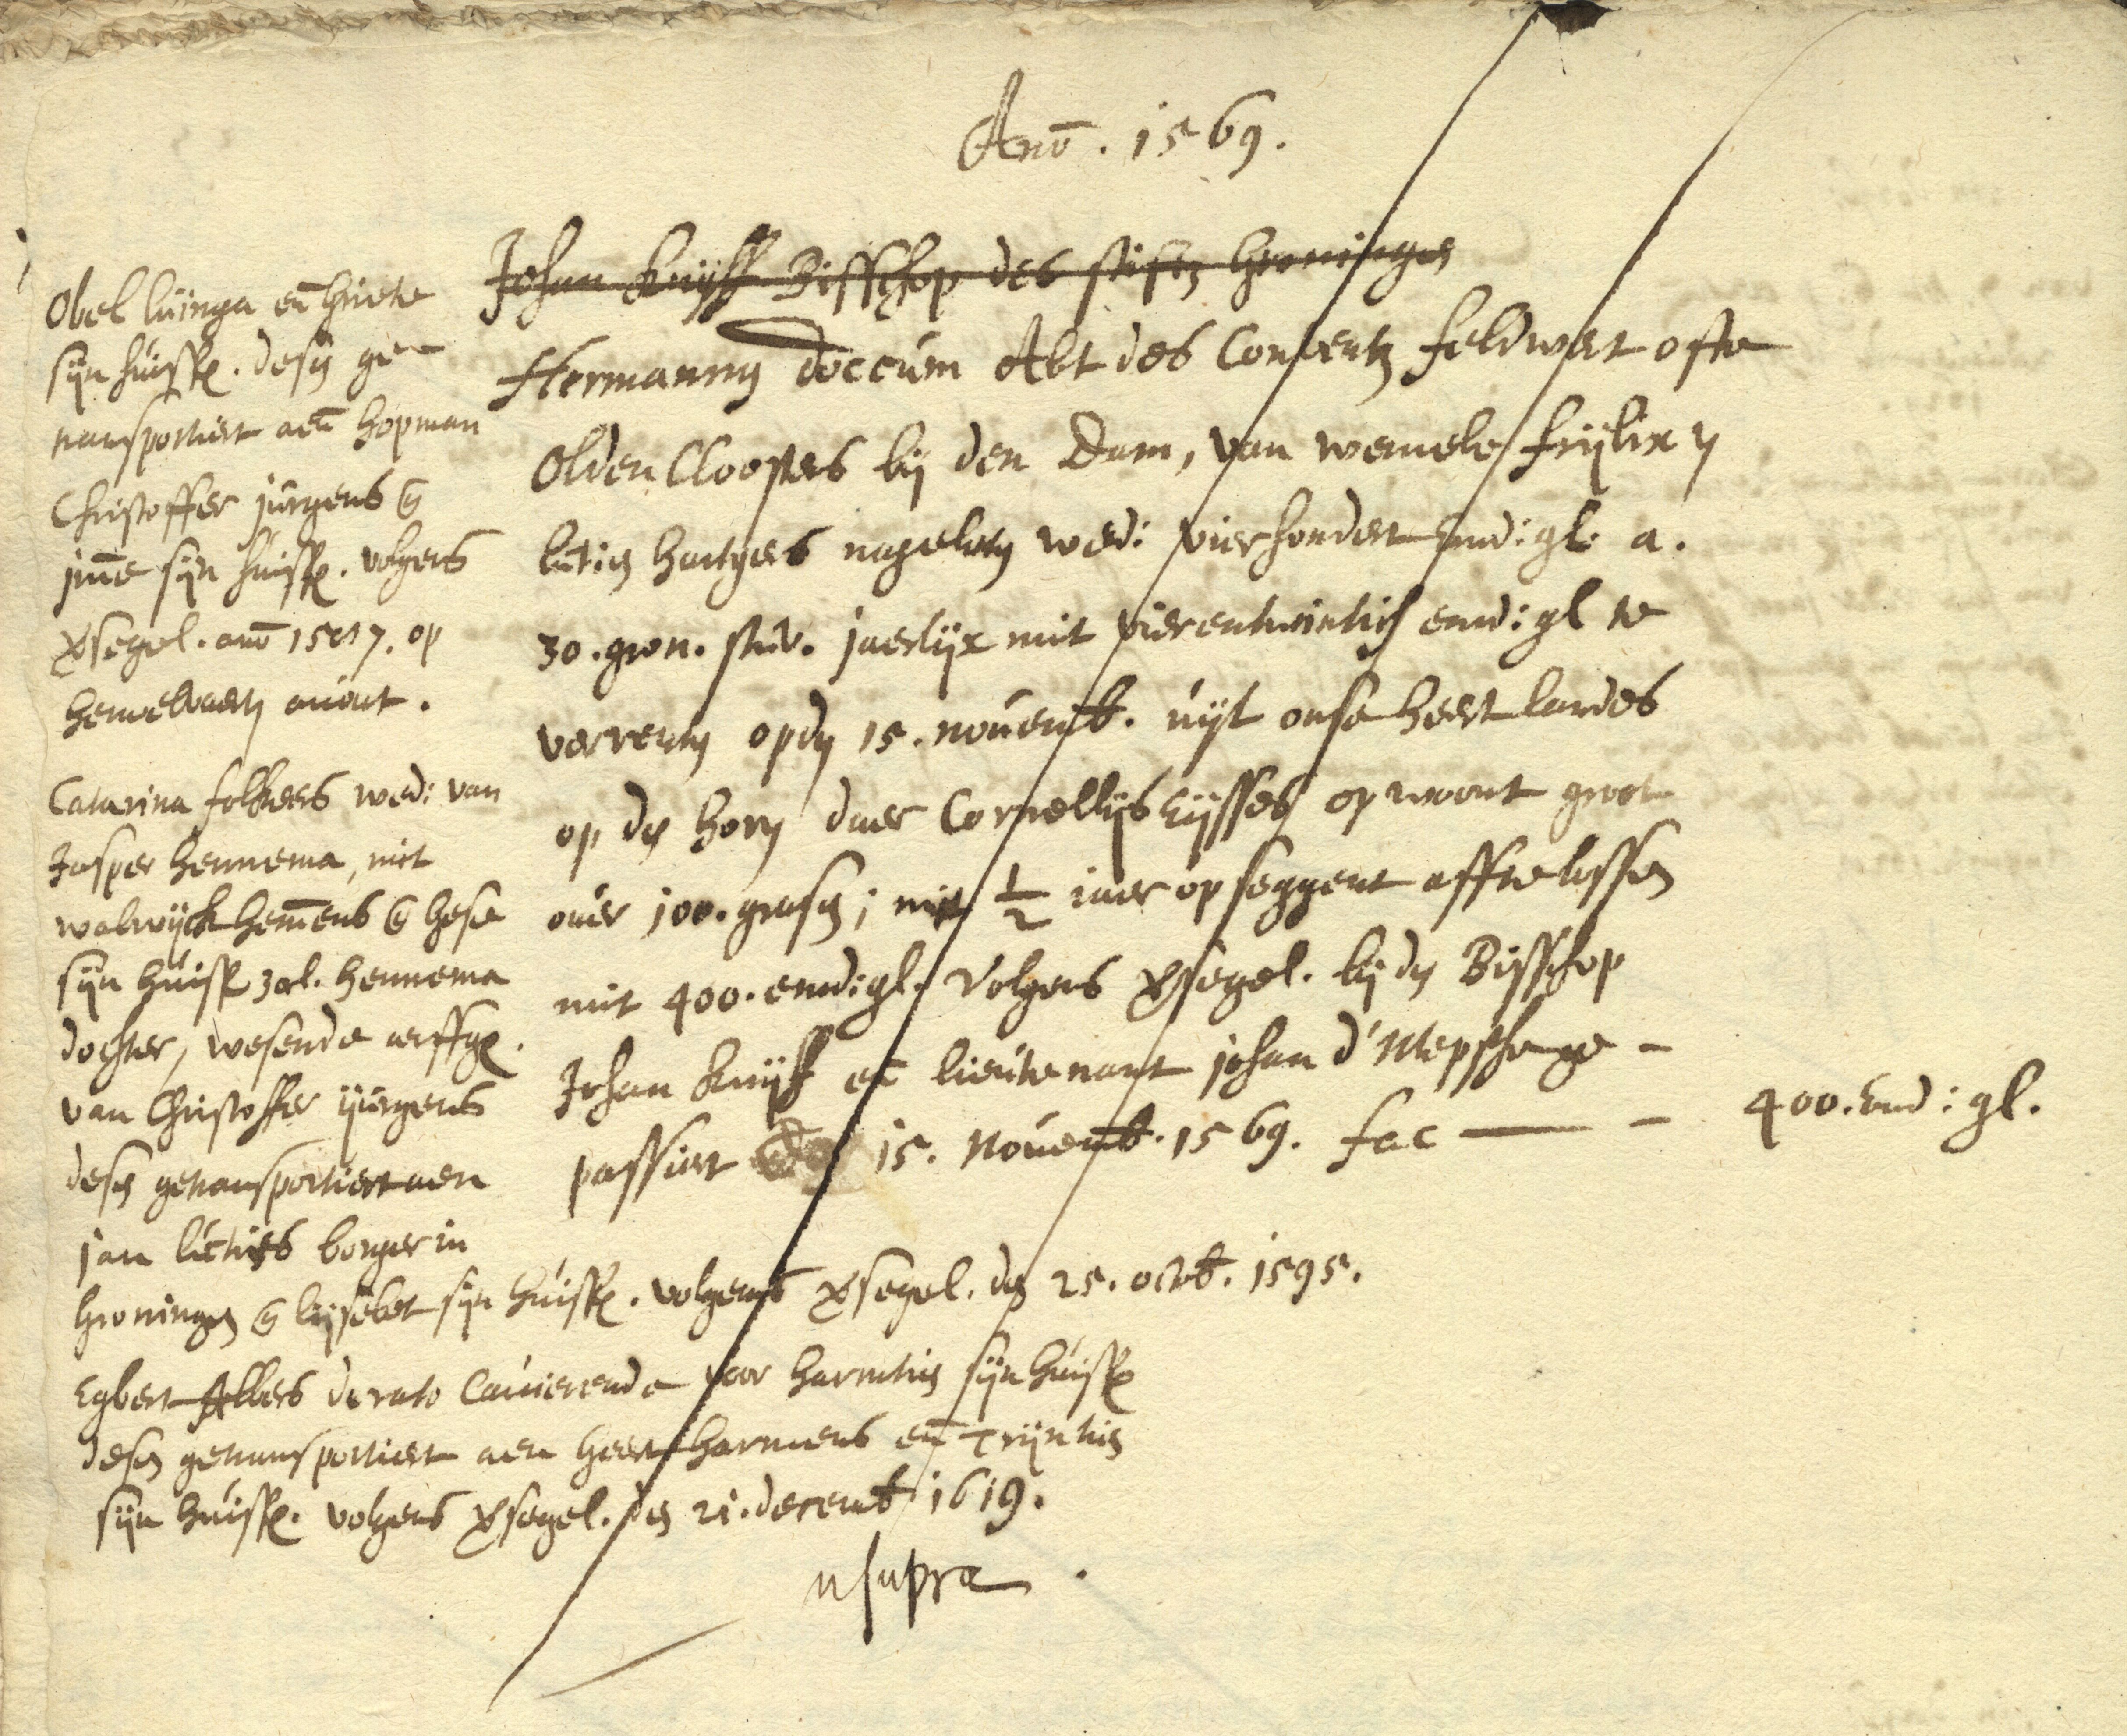 Anō. 1569.
Johan Knijff Bisschop des stifts Groningen
Hermannus Doccum Abt des Convents feldwert ofte
Olden Cloosters bij den Dam, van wemele frijlix
lutien hartgers nagelaten wed: vierhondert emd: gl. a.
30. gron. stuv. jaerlijx mit vierentwintich emd: gl te
verrenten op den 15. novemb. uijt onse heert landes
op den horn daer Cornellijs Eijsses op woont groot
over 100. grasen; mit ½ iaer opseggent affte lossen
mit 400. emd: gl. Volgens segel. bij den Bisschop
Johan Knijff eñ lieutenant johan d'Mepsche ge-
passiert den 15. Novemb. 1569. fac — - 400. Emd: gl.
Obel luinga eñ Griete
sijn huissf. desen ge-
transportiert aen hopman
Christoffer jurgens
sijn huissf. volgens
segel. anō op
avont.
Catarina folkers wed: van
Jasper hennema, mit
walwijck hemens hese
sijn huissf zal. hennema
dochter, wesende erffg.
van Christoffer ijurgens
desen getransportiert aen
jan luities borger in
Groningen lijsebet sijn huissf. volgens segel. den 25. octob. 1595.
Egbert Albers de rato Caverende voor harmtien sijn huissf
desen getransportiert aen geert harmens eñ trijntien
sijn huissf. volgens segel. den 21. decemb 1619.
ut supra.